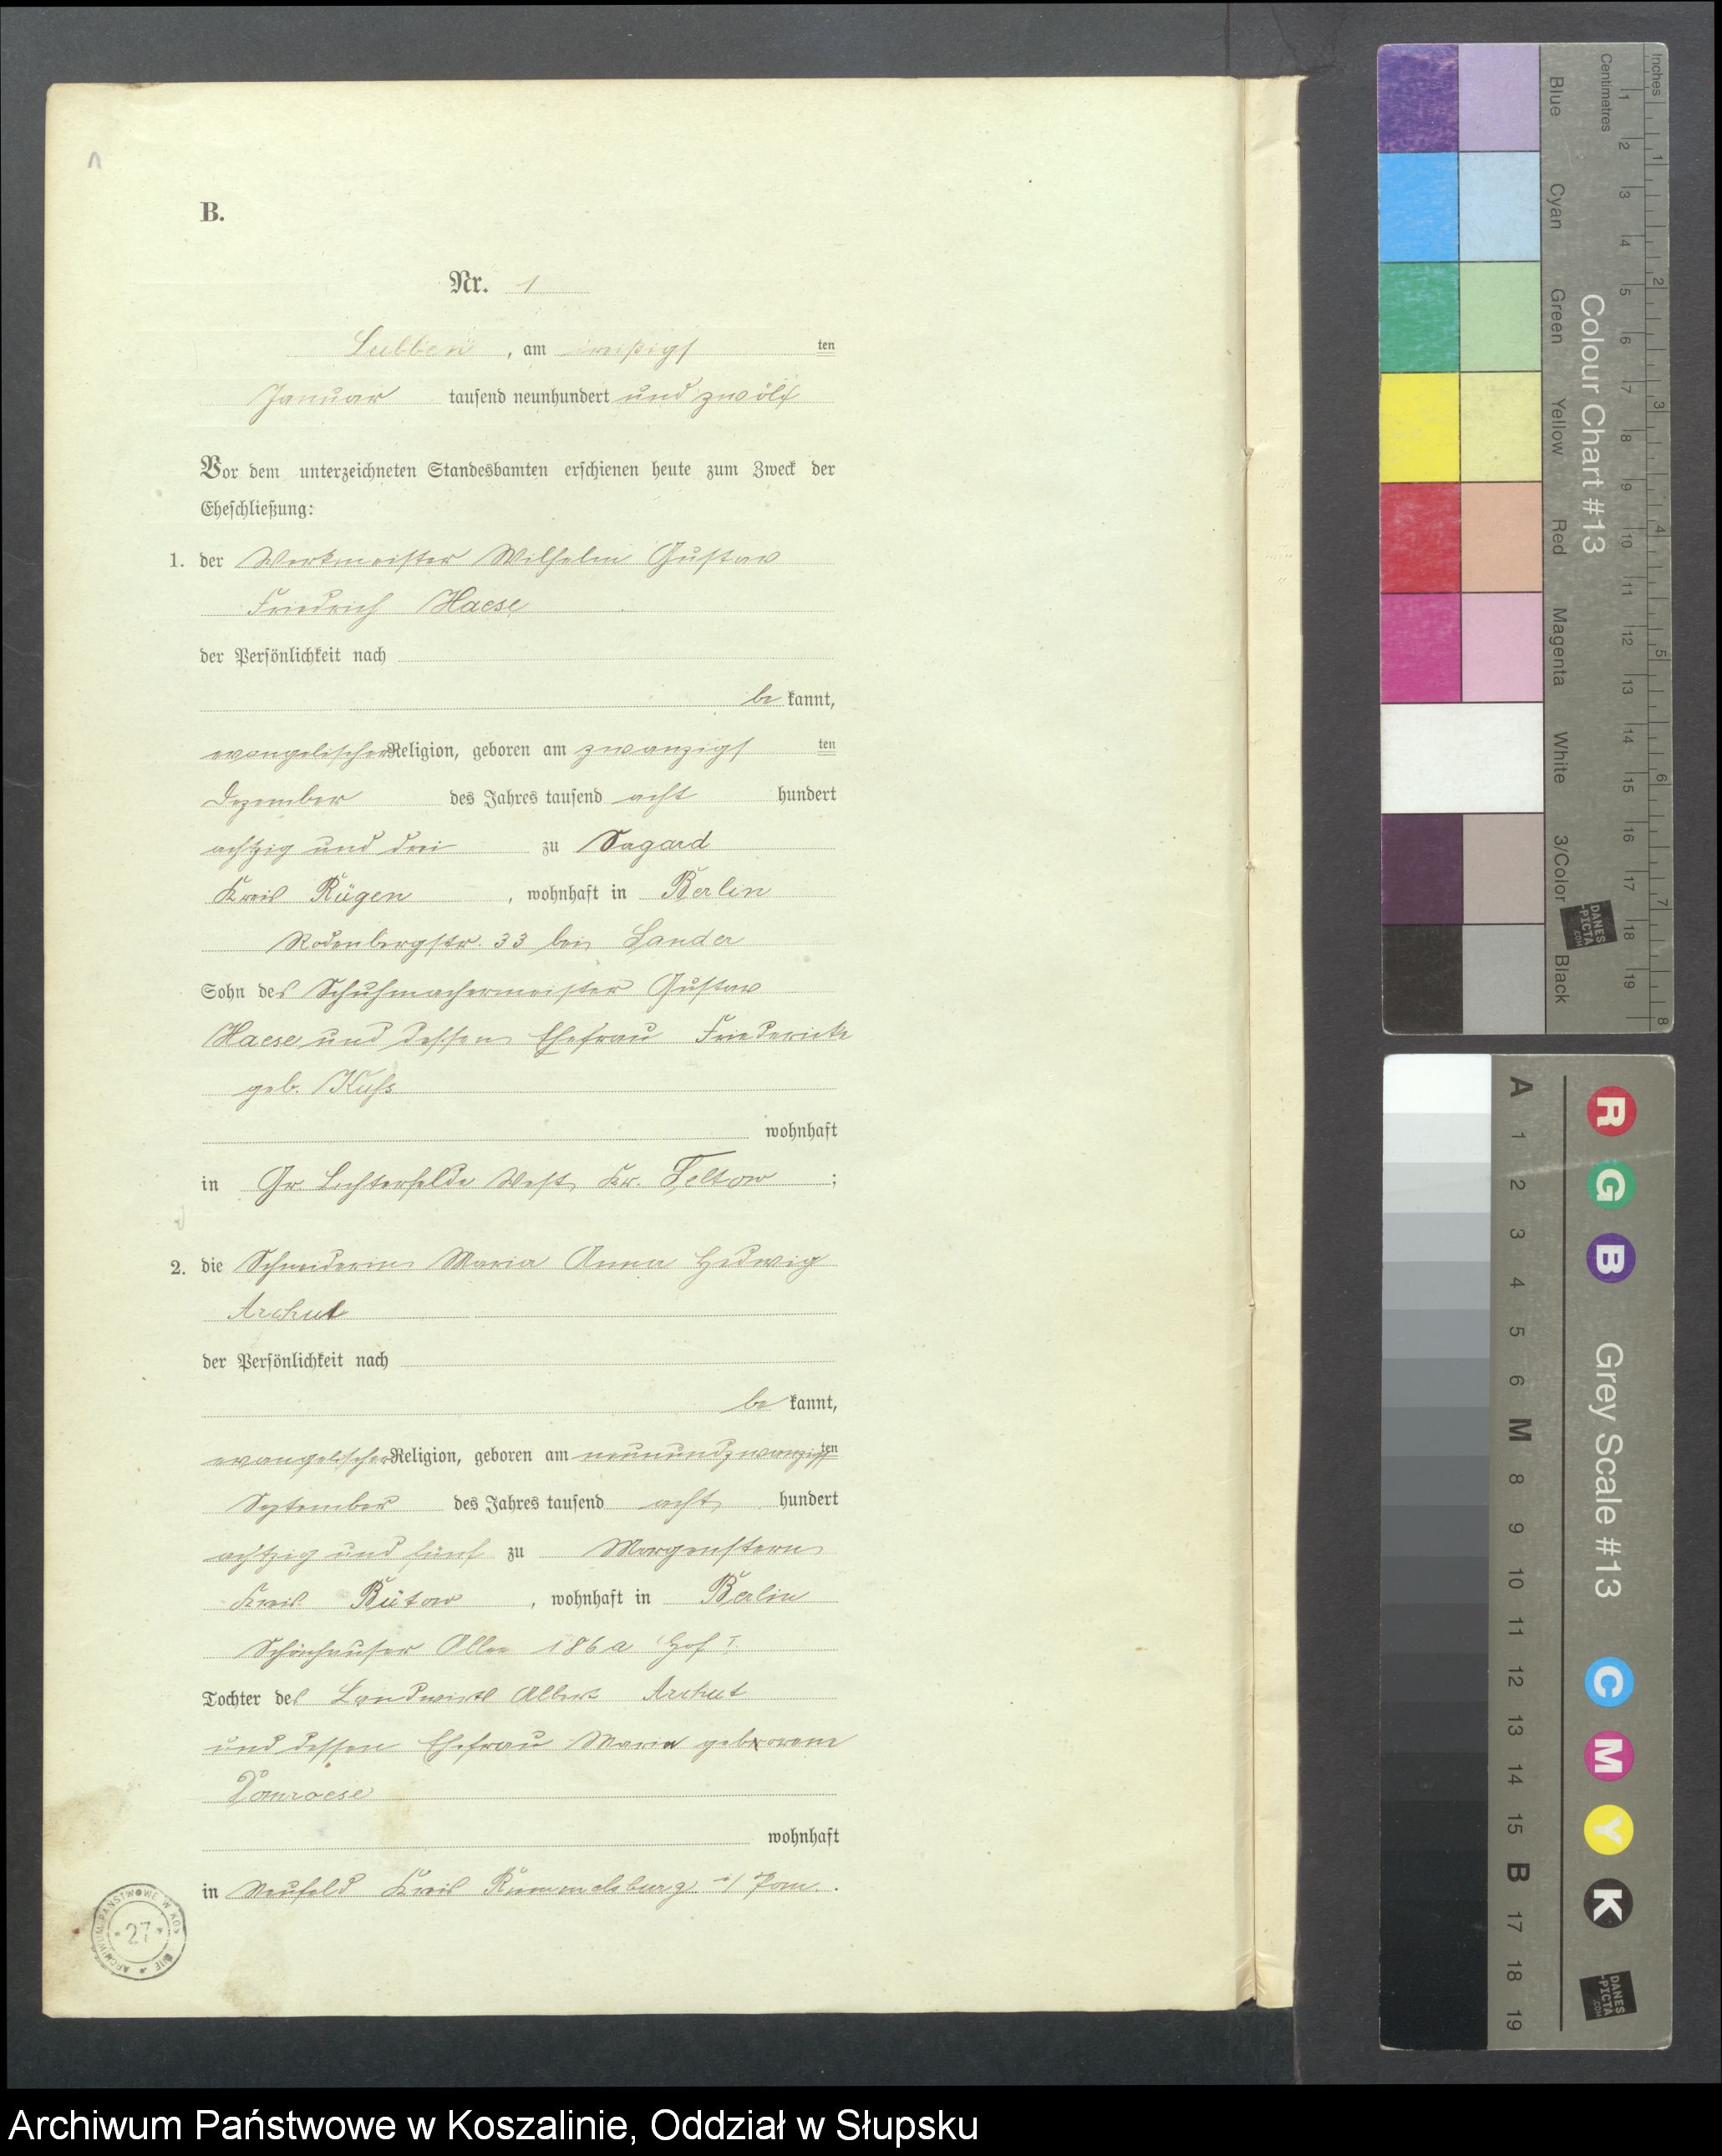 B.
Nr. 1
Lubben, am dreißigsten
Januar tausend neunhundert und zwölf
Vor dem unterzeichneten Standesbamten erschienen heute zum Zweck der
Eheschließung:
1. der Werkmeister Wilhelm Gustav
Friedrich Haese
der Persönlichkeit nach
be kannt,
evangelischer Religion, geboren am zwanzigsten
Dezember des Jahres tausend acht hundert
achtzig und drei zu Sagard
Kreis Rügen, wohnhaft in Berlin
Rodenbergstr. 33 bei Lander
Sohn des Schuhmachermeister Gustav
Haese und dessen Ehefrau Friedericke
geb. Kuhs
wohnhaft
in Gr. Lichterfelde West, Kr. Teltow;
2. die Schneiderin Maria Anna Hedwig
Archut
der Persönlichkeit nach
be kannt,
evangelischer Religion, geboren am neunundzwanzigsten
September des Jahres tausend acht hundert
achtzig und fünf zu Morgenstern
Kreis Bütow, wohnhaft in Berlin
Schönhauser Allee 186a Hof I.
Tochter des Landwirts Albert Archut
und dessen Ehefrau Maria geborene
Pomraese
wohnhaft
in Neufeld Kreis Rummelsburg i/ Pom.
ARCHIWUM PAŃSTWOWE W
* 27 *
Inches
Centimetres
Colour Chart #13
Blue
Cyan
Green
Yellow
Red
Magenta
White
3/Color
Black
1 2 3 4 5 6 7 8 9 10 11 12 13 14 15 16 17 18 19
1 2 3 4 5 6 7 8
DANES
-PICTA
.COM
Grey Scale #13
R G B
C M Y K
A 1 2 3 4 5 6 M 8 9 10 11 12 13 14 15 B 17 18 19
DANES
-PICTA
.COM
Archiwum Państwowe w Koszalinie, Oddział w Słupsku